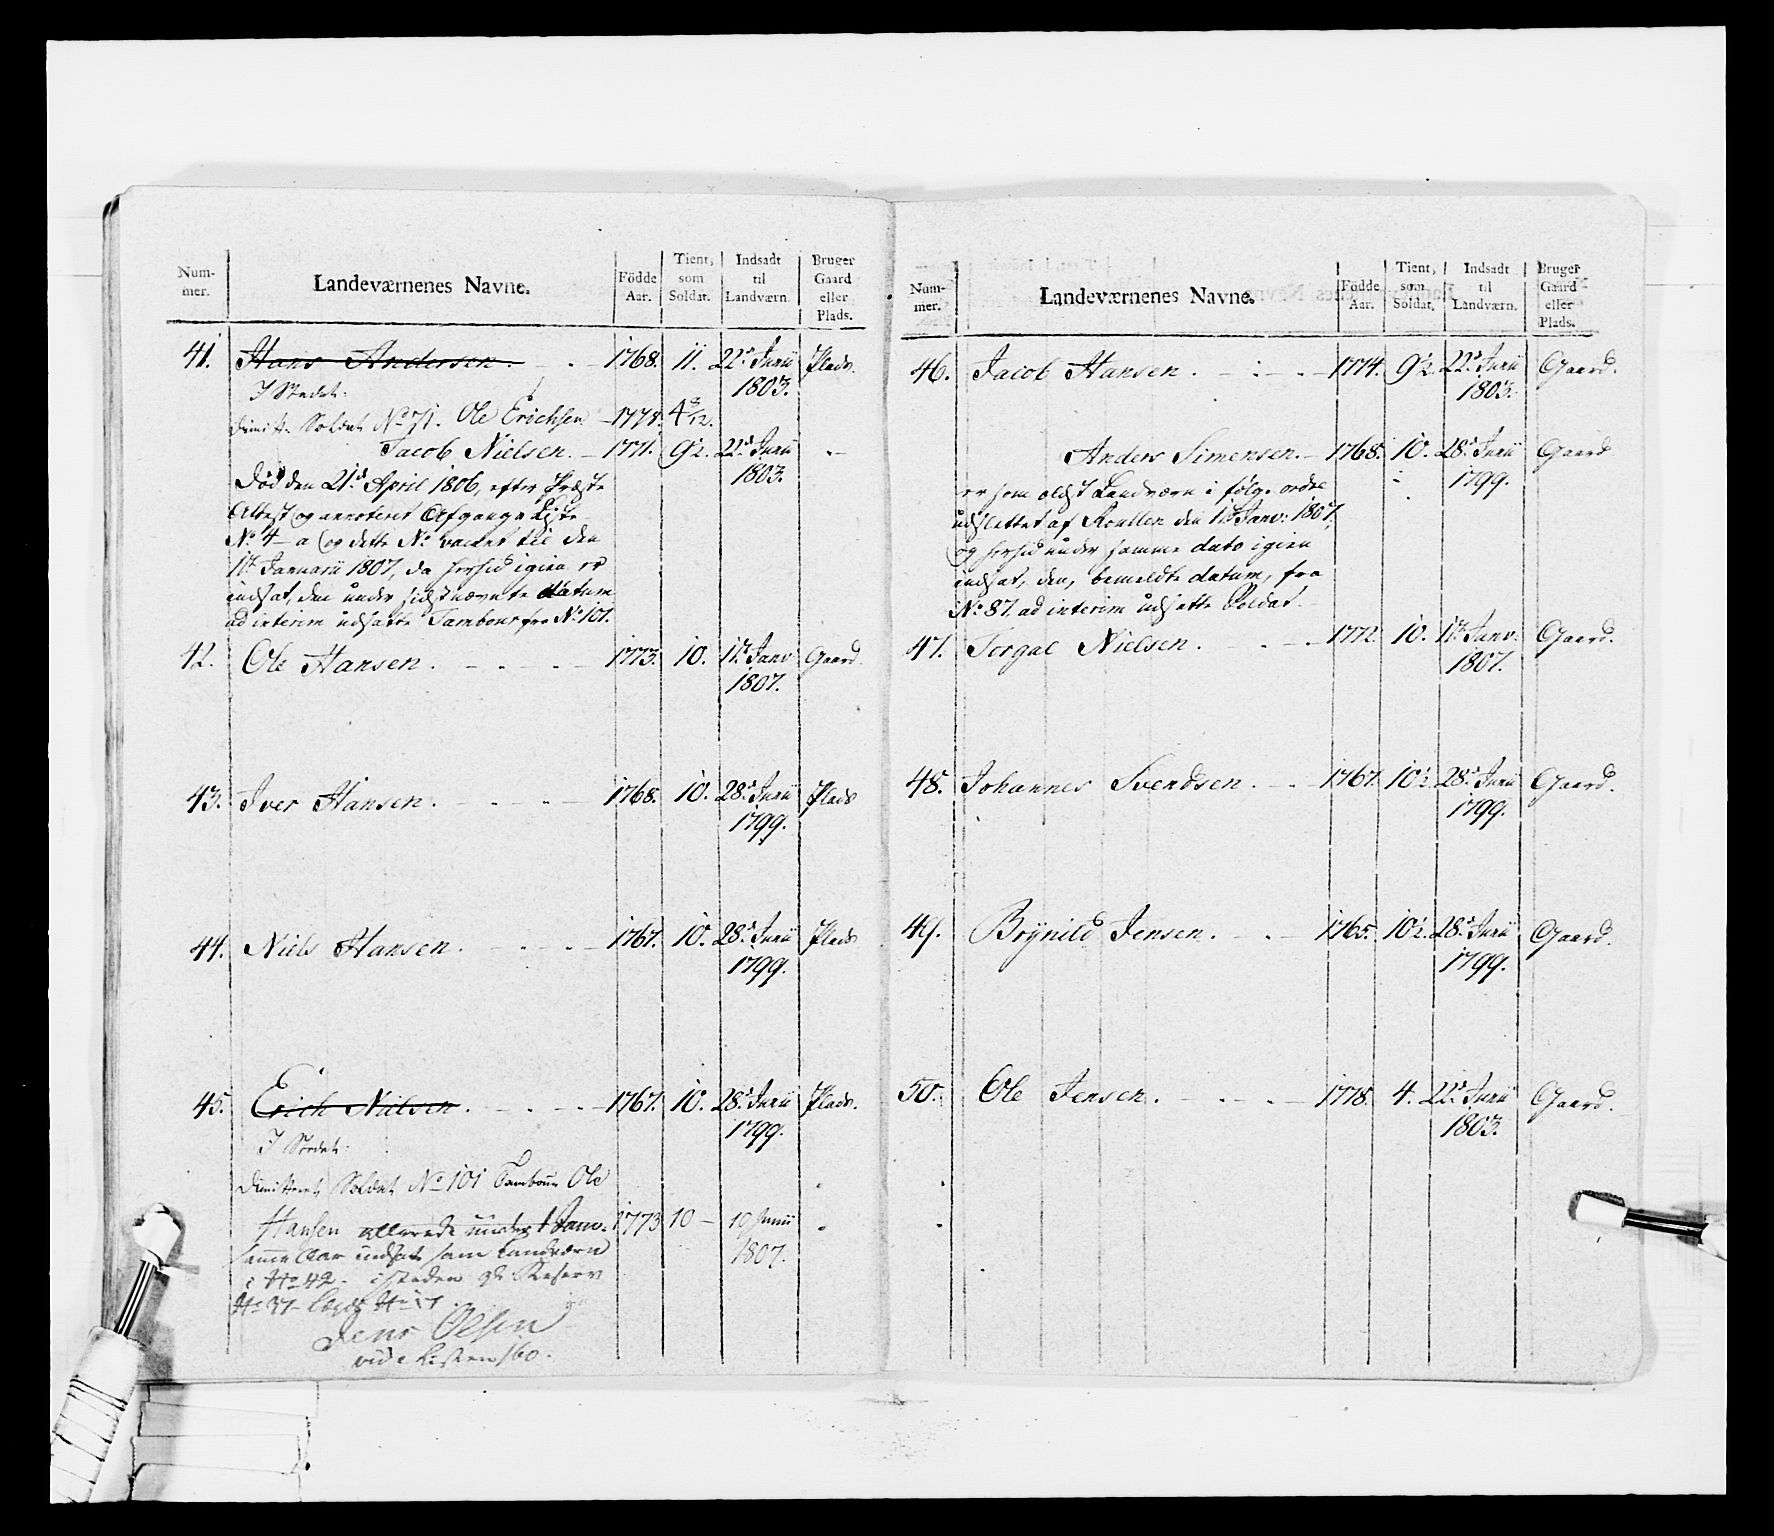 Num-
mer.
Landeværnenes Navne.
Födde
Aar.
Tient,
som
Soldat.
Indsadt
til
Landværn.
Bruger
Gaard
eller
Plads.
41. Hans Andersen. 1768. 11. 22d Junii Plads.
I Stedet. 1803.
Dimitt. Soldat No 71. Ole Erichsen 1778. 4 8/12.
Jacob Nielsen. 1771. 9½. 22d Junii
1803.
Död den 21d April 1806, efter Præste
Attest og annoteret Afgangs Liste
No 4 a og dette No vacket til den
1te Januarii 1807, da hersid igien er
indsat, den under sidstnævnte datum
ad interim udsatte Tambour fra No 101.
42. Ole Hansen. 1773. 10. 1te Janv. Gaard.
1807.
43. Iver Hansen. 1768. 10. 28d Junii Plads
1799.
44. Niels Hansen. 1767. 10. 28d Junii Plads
1799.
45. Erich Nielsen. 1767. 10. 28d Junii Plads.
1799.
I Stedet.
Dimitteret Soldat No 101 Tambour Ole
Hansen allerede under 1 Janv. 1773 10 10 Junii
1807.
samme Aar indsat som Landværn
i No 42. isteden Reserv
No 37 No 17
Jens Olsen
vide Listen 160.
Num-
mer.
Landeværnenes Navne.
Födde
Aar.
Tient,
som
Soldat.
Indsadt
til
Landværn.
Bruger
Gaard
eller
Plads.
46. Jacob Hansen. 1774. 9½. 22d Junii Gaard.
1803.
Anders Simensen. 1768. 10. 28d Junii Gaard
1799.
er som ældst Landværn i fölge ordre
udslettet af Roullen den 1te Janv: 1807,
og hersid under samme dato igien
indsat, den, bemeldte datum, fra
No 87. ad interim udsatte Soldat.
47. Torgal Nielsen. 1772. 10. 1te Janv. Gaard.
1807.
48. Johannes Svendsen. 1767. 10½. 28d Junii Gaard.
1799.
49. Brynild Jensen. 1765. 10½. 28d Junii Gaard.
1799.
50. Ole Jensen. 1778. 4. 22d Junii Gaard.
1803.